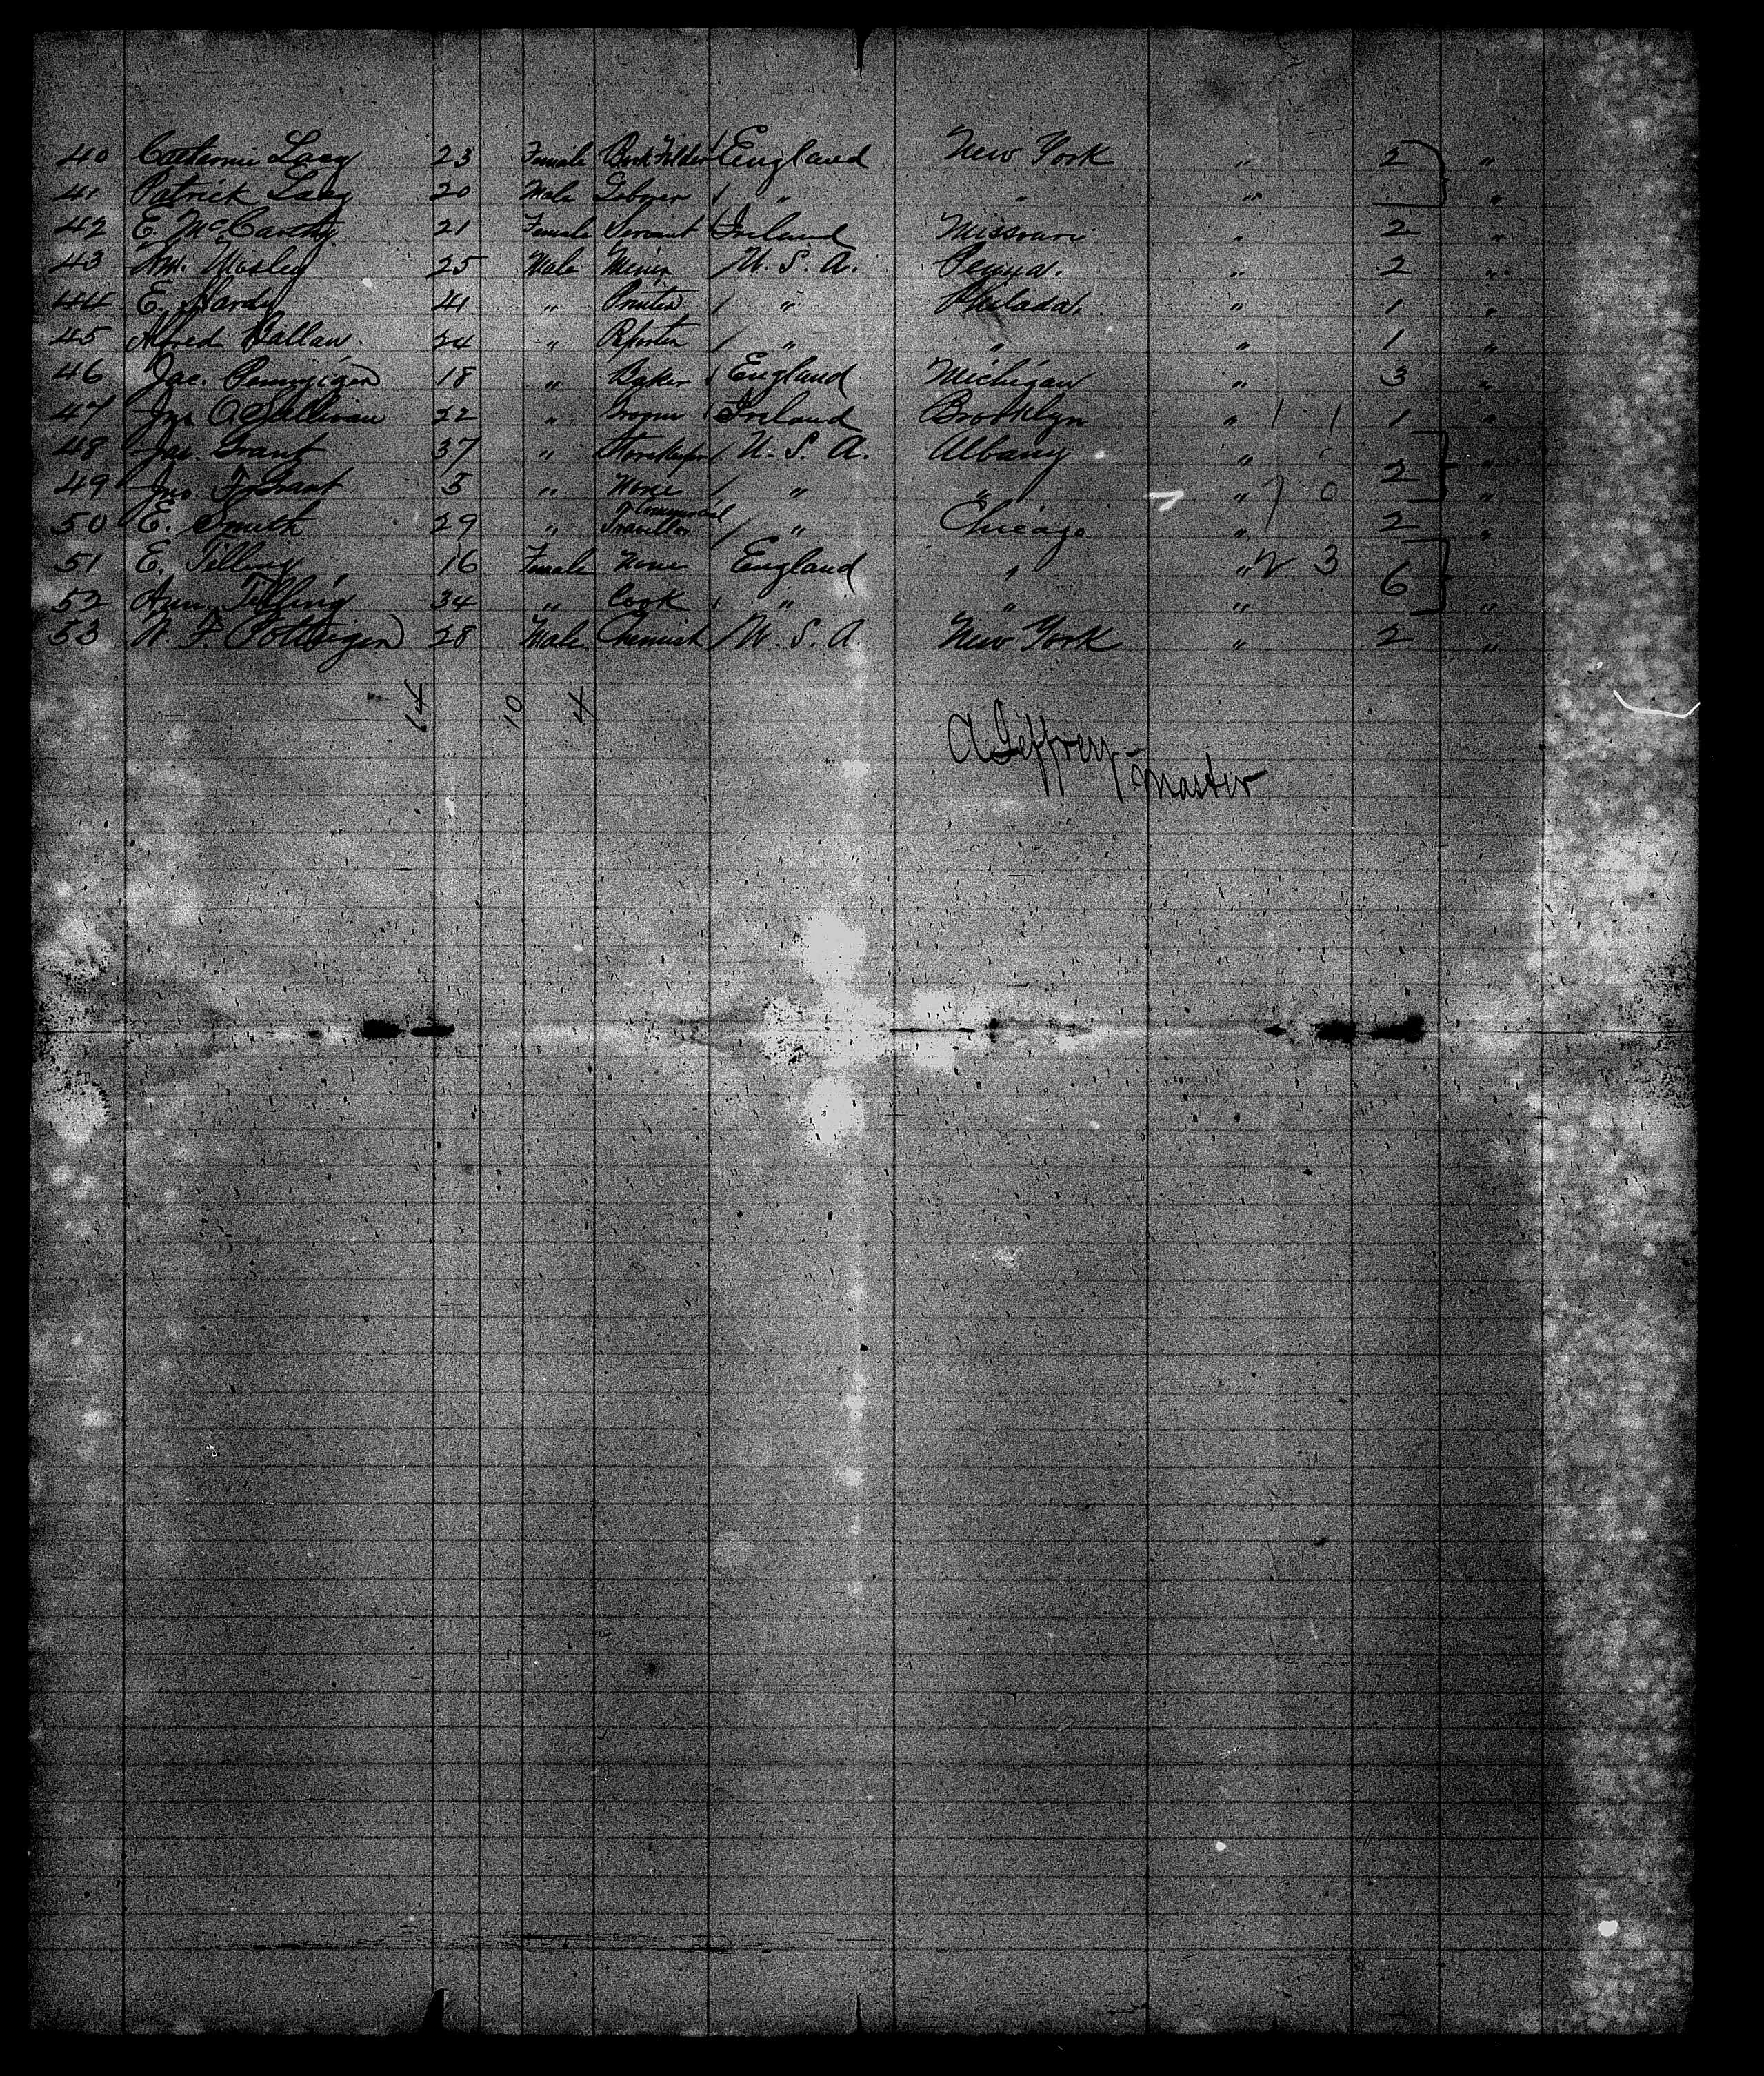 40 Catharine Lacy 23 Female Book Folder / England New York " 2 "
41 Patrick Lacy 20 Male Laborer / " " " "
42 E. McCarthy 21 Female Servant / Ireland Missouri " 2 "
43 Wm. Mosley 25 Male Miner / U. S. A. Penna. " 2 "
44 E. Hardy 41 " Printer / " Philada. " 1 "
45 Alfred Hallam 24 " Reporter / " " " 1 "
46 Jac. 18 " Baker / England Michigan " 3 "
47 Jno O'Sullivan 22 " / Ireland Brooklyn " 1 1 1 "
48 Jas. Grant 37 " Storekeeper / U. S. A. Albany " 2 "
49 Jno. F. Grant 5 " None / " " " 7 0 "
50 E. Smith 29 " Commercial Traveller / " Chicago " 2 "
51 E. Tilling 16 Female None England " " 2 3 6
52 Ann. Tilling 34 " Cook " " " "
53 W. F. 28 Male Chemist / U. S. A. New York " 2 "
14 10 4
A Jeffrey - Master